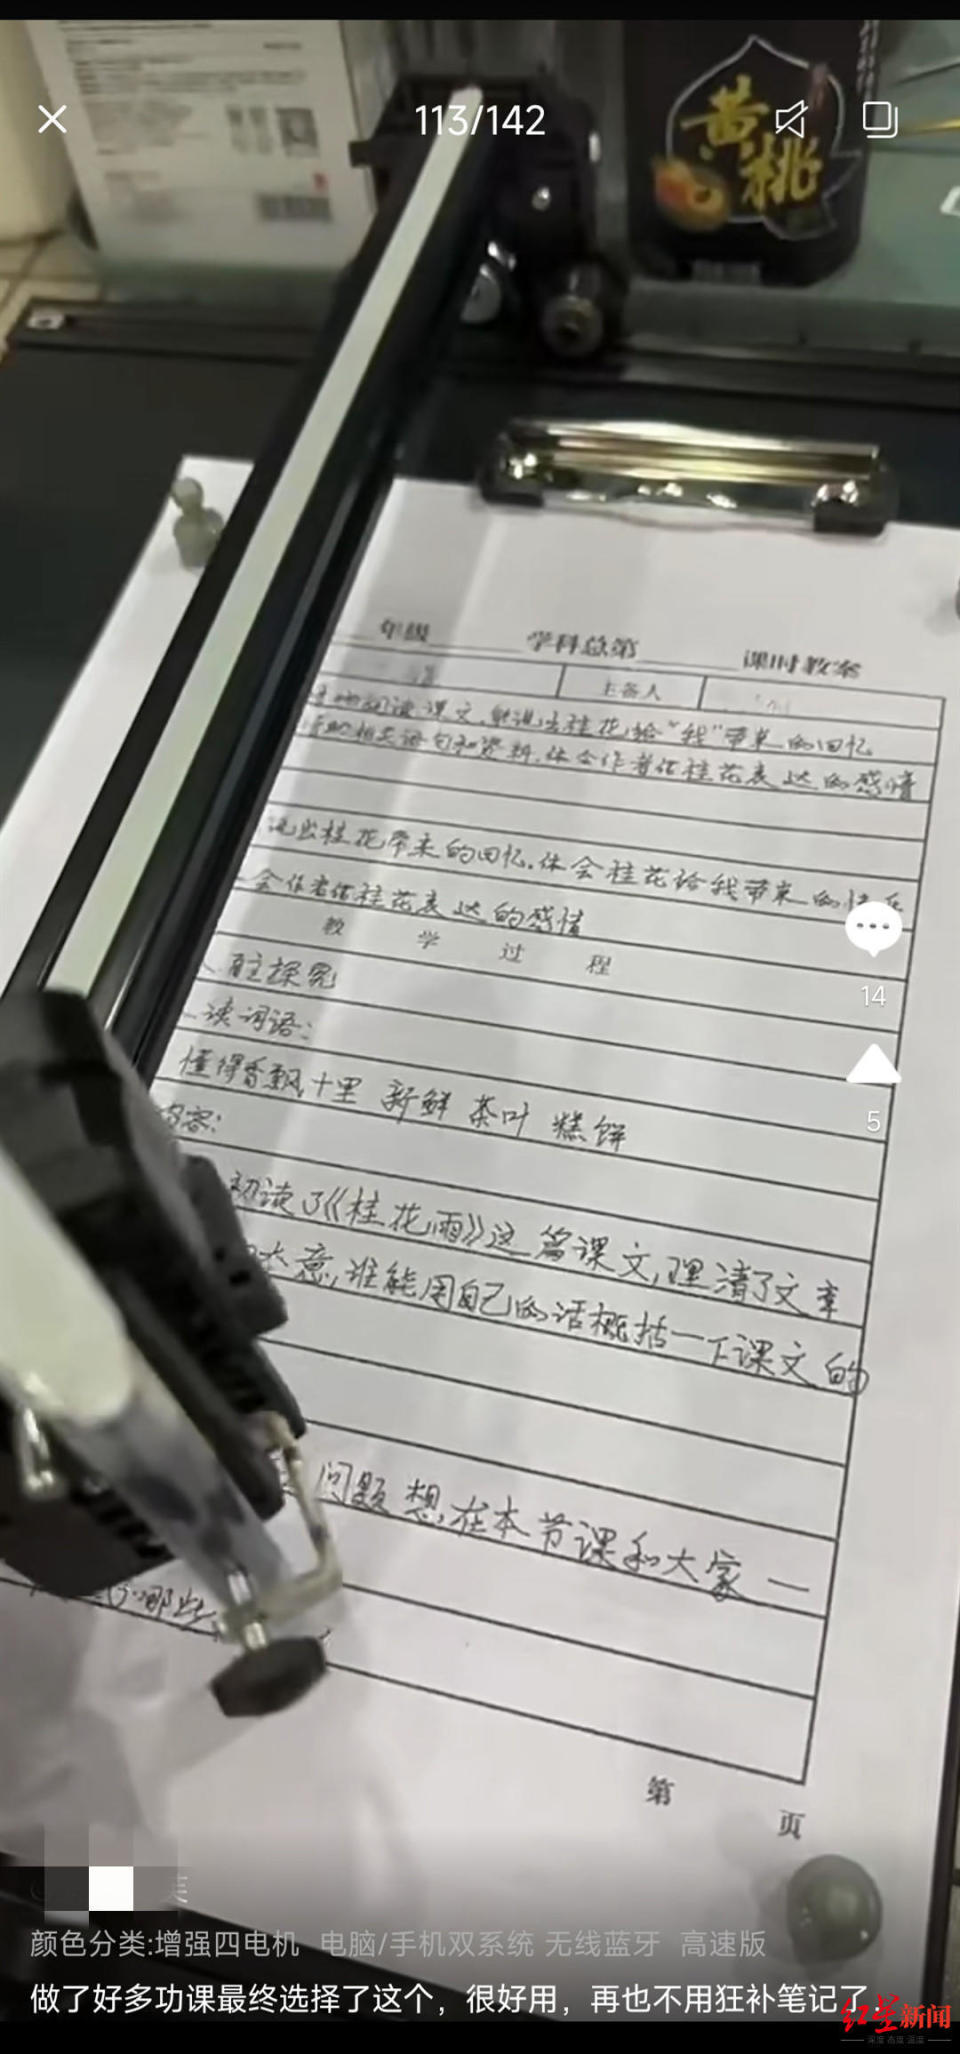 113/142
黄桃
年级 学科总第 课时教案
主备人
读课文,能说出桂花给“我”带来的回忆
相关语句和资料,体会作者借桂花表达的感情
说出桂花带来的回忆.体会桂花给我带来的
会作者借桂花表达的感情
教学过程
自主探究
读词语:
懂得香飘十里 新鲜 茶叶 糕饼
内容:
初读了《桂花雨》这篇课文,理清了文章
大意,谁能用自己的话概括一下课文的
问题想,在本节课和大家一
哪些
第 页
14
5
颜色分类:增强四电机 电脑/手机双系统 无线蓝牙 高速版
做了好多功课最终选择了这个，很好用，再也不用狂补笔记了，
红星新闻
深度 态度 温度